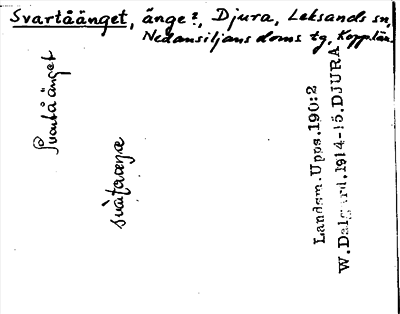 Svartåänget, änge?, Djura, Leksands sn,
Nedansiljans doms tg, Kopp.län.
Svartå änget
Landsm. Upps. 190:2
W. Dalgård. 1914-15. DJURA